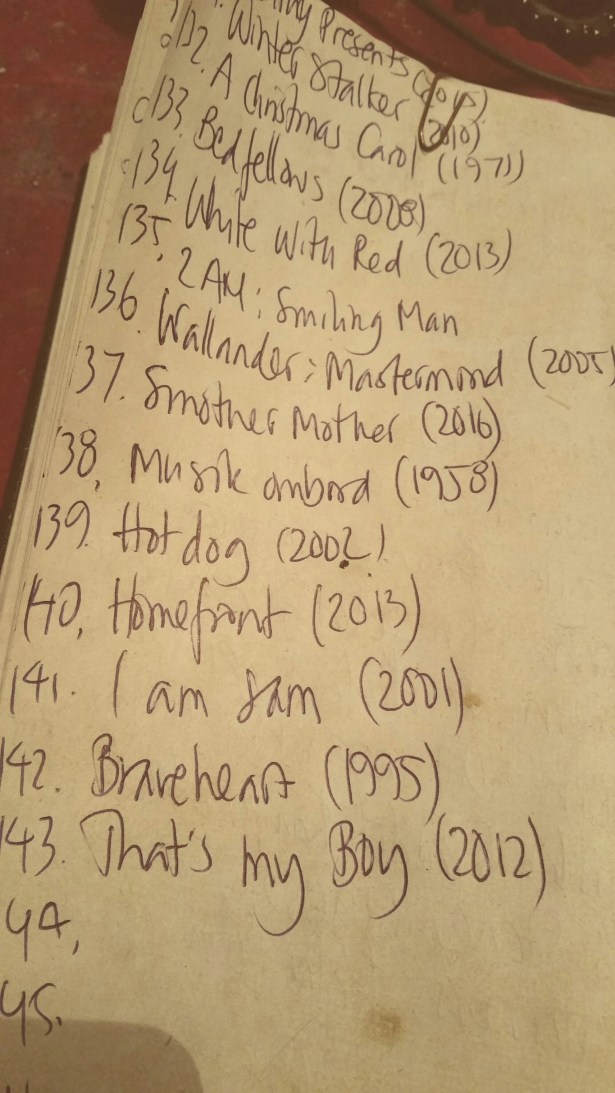 Presents (2015)
Winter Stalker (2010)
132. A Christmas Carol (1971)
133. Bedfellows (2008)
134. White With Red (2013)
135. 2AM: Smiling Man
136. Wallander: Mastermind (2005)
137. Smother Mother (2016)
138. Musik ombord (1958)
139. Hotdog (2002)
140. Homefront (2013)
141. I am Sam (2001)
142. Braveheart (1995)
143. That's my Boy (2012)
44.
45.